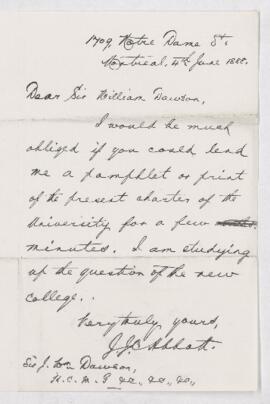 1709, Notre Dame St.
Montreal, 4th June 1888.
Dear Sir William Dawson,
I would be much
obliged if you could lend
me a pamphlet or print
of the present charter of the
University for a few
minutes. I am studying
up the question of the new
college.
Very truly yours,
J.J.C. Abbott.
Sir J. Wm Dawson,
K.C.M.G &c., &c., &c.,